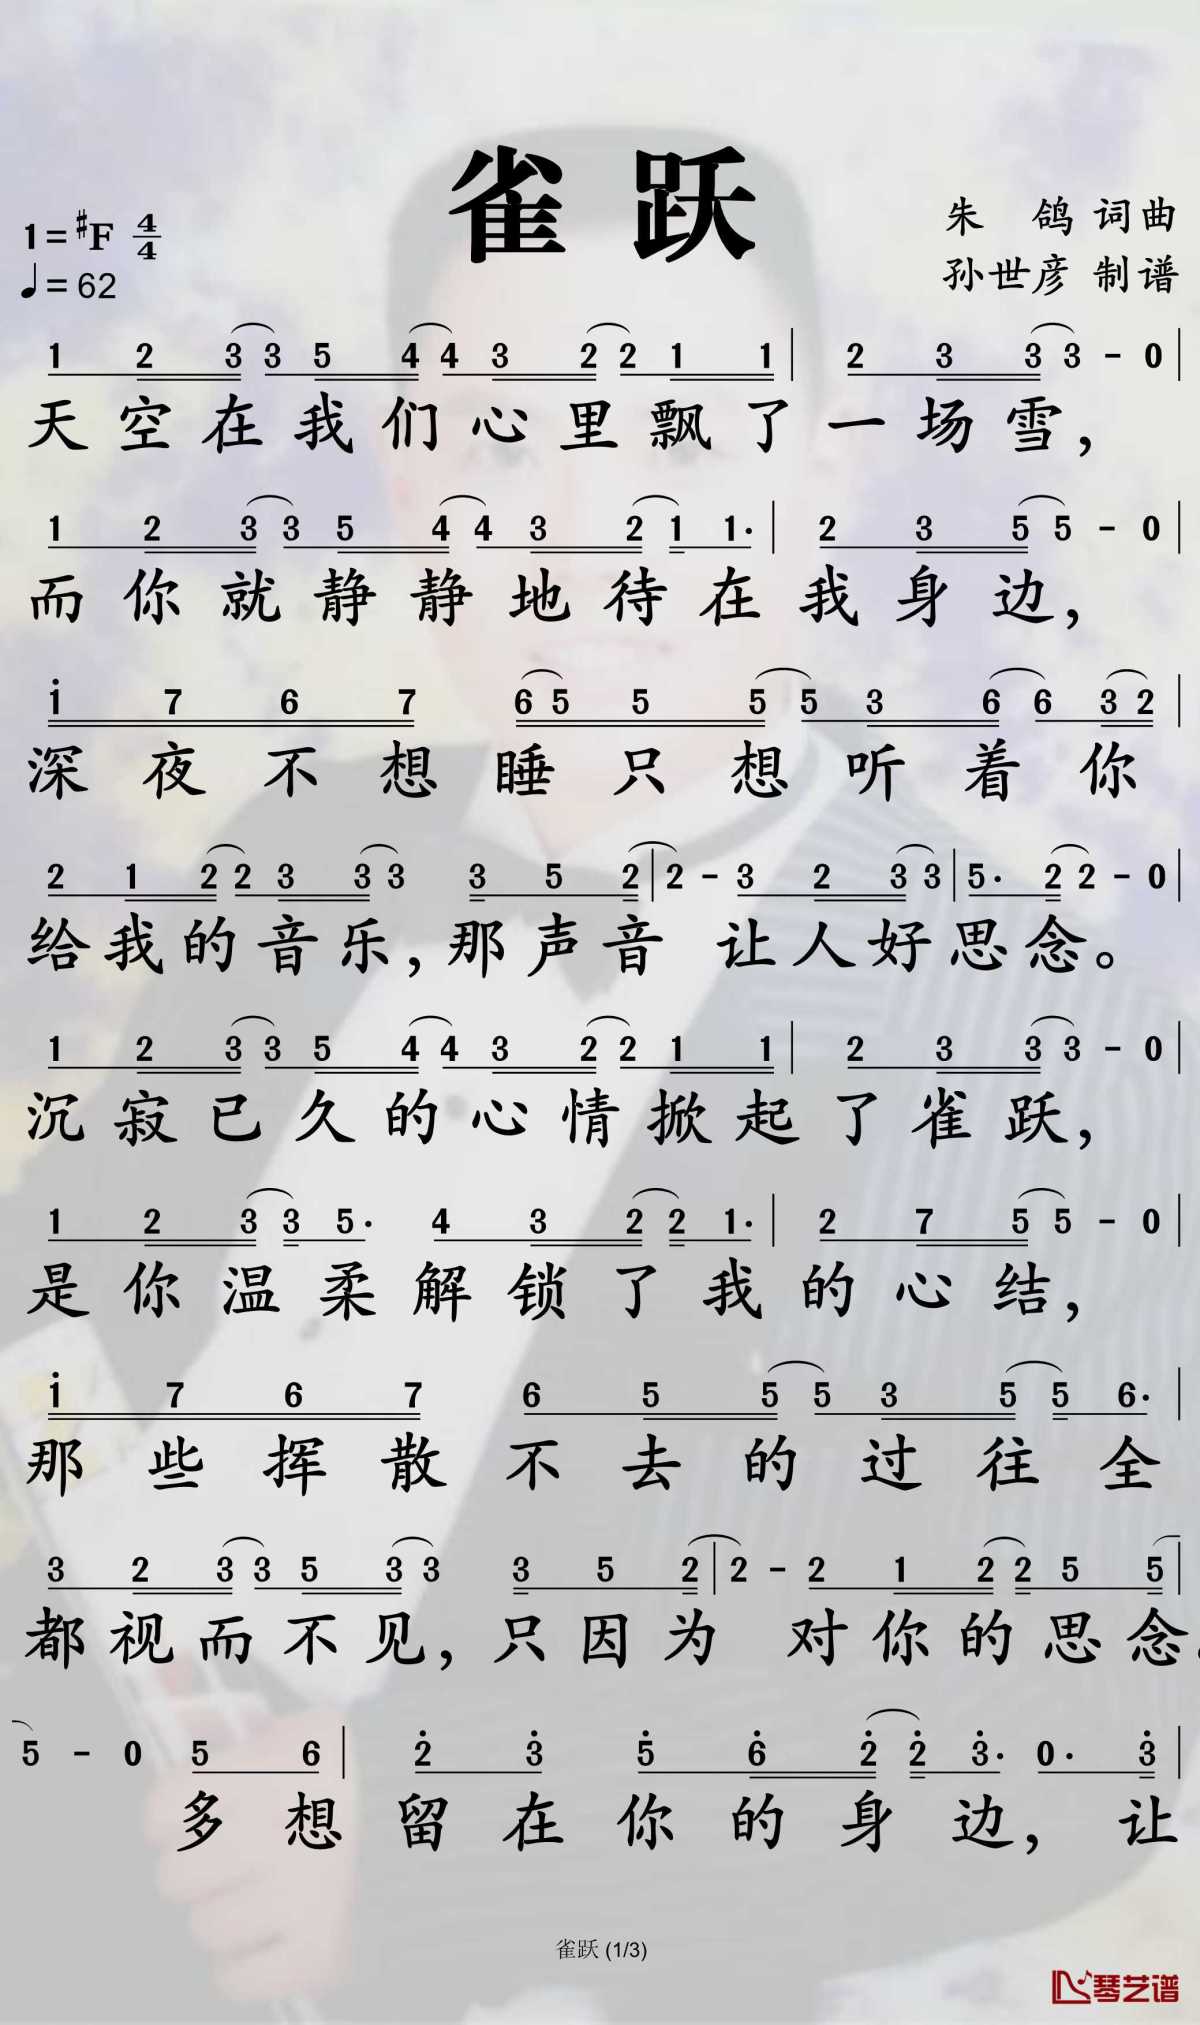 雀跃
1=#F 4/4
♩=62
朱 鸽 词曲
孙世彦 制谱
1 2 3 3 5 4 4 3 2 2 1 1 | 2 3 3 3 - 0 |
天空在我们心里飘了一场雪，
1 2 3 3 5 4 4 3 2 1 1· | 2 3 5 5 - 0
而你就静静地待在我身边，
i 7 6 7 6 5 5 5 5 3 6 6 3 2 |
深夜不想睡只想听着你
2 1 2 2 3 3 3 3 5 2 | 2 - 3 2 3 3 | 5· 2 2 - 0 |
给我的音乐，那声音 让人好思念。
1 2 3 3 5 4 4 3 2 2 1 1 | 2 3 3 3 - 0 |
沉寂已久的心情掀起了雀跃，
1 2 3 3 5· 4 3 2 2 1· | 2 7 5 5 - 0 |
是你温柔解锁了我的心结，
i 7 6 7 6 5 5 5 3 5 5 6· |
那些挥散不去的过往全
3 2 3 3 5 3 3 3 5 2 | 2 - 2 1 2 2 5 5 |
都视而不见，只因为 对你的思念。
5 - 0 5 6 | 2 3 5 6 2 2 3· 0· 3 |
多想留在你的身边，让
雀跃 (1/3)
琴艺谱